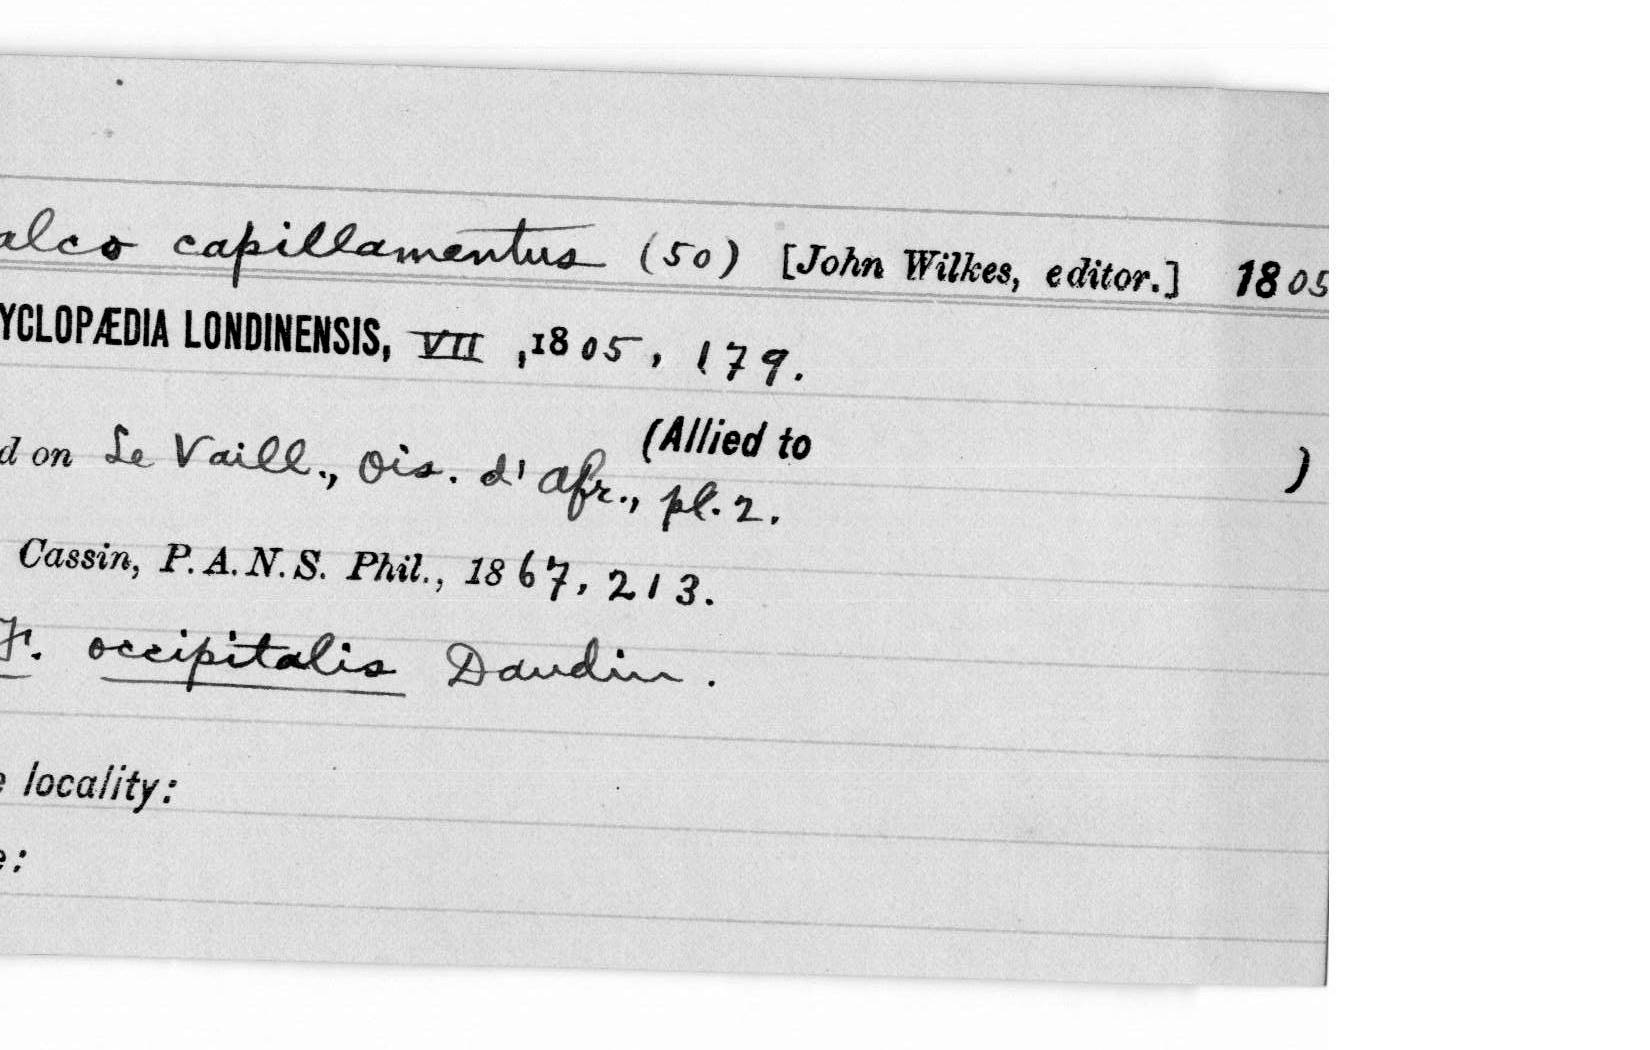 alco capillamentus (50) [John Wilkes, editor.] 1805
YCLOPÆDIA LONDINENSIS, VII, 1805, 179.
(Allied to )
d on Le Vaill., Ois. d'Afr., pl. 2.
Cassin, P.A.N.S. Phil., 1867, 213.
F. occipitalis Daudin.
e locality:
e: